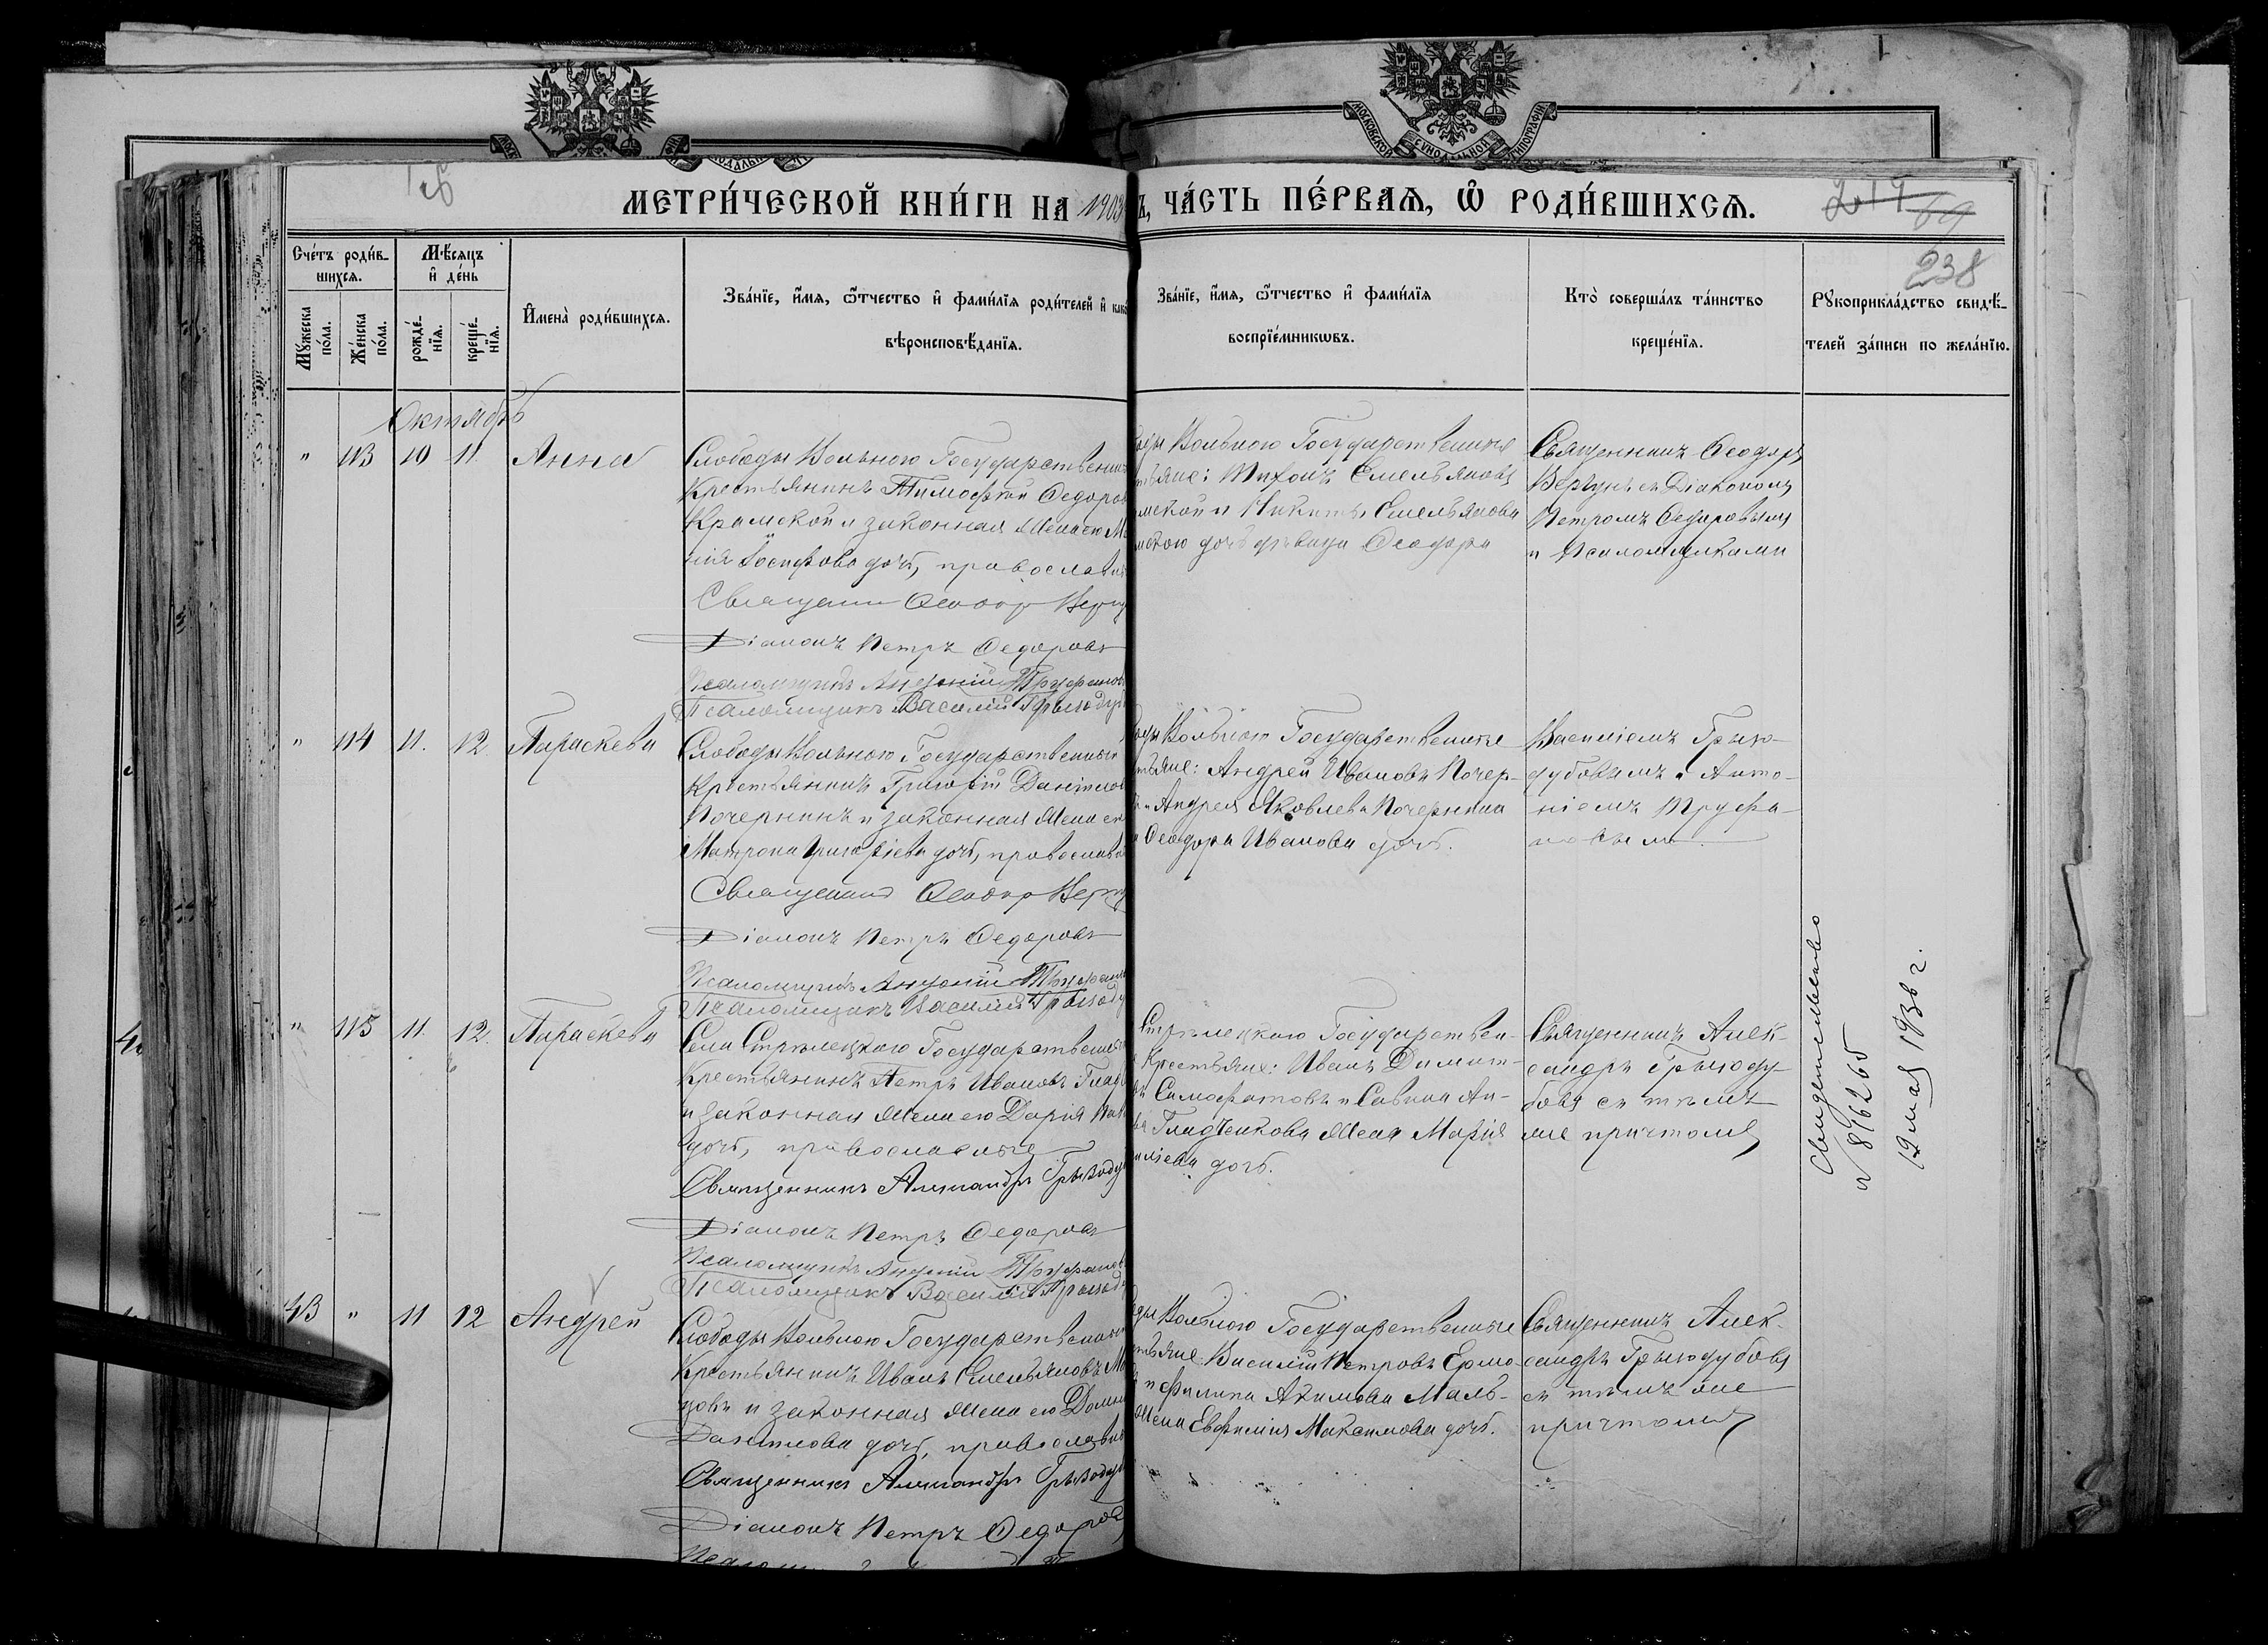 МОСКОВСКОЙ СУНОДАЛЬНОЙ ТИПОГРАФІИ
МЕТРИ́ЧЕСКОЙ КНИ́ГИ НА 1903
Ъ, ЧА́СТЬ ПЕ́РВАѦ, Ѡ҆ РОДИ́ВШИХСѦ.
238
Сче́тъ роди́в-
шихсѧ.
Мѣ́сѧцъ
и҆ де́нь
Мꙋ́жеска
по́ла.
Же́нска
по́ла.
рожде́-
нїѧ.
креще́-
нїѧ.
И҆мена̀ роди́вшихсѧ.
Зва́нїе, и҆́мѧ, ѻ҆́тчество и҆ фами́лїѧ роди́телей и҆ како
вѣроисповѣ́данїѧ.
Зва́нїе, и҆́мѧ, ѻ҆́тчество и҆ фами́лїѧ
воспрїе́мникѡвъ.
Кто̀ соверша́лъ та́инство
креще́нїѧ.
Рꙋкоприкла́дство свидѣ́-
телей за́писи по жела́нїю.
Октябрь
" 113 10 11 Анна
Слободы Вольнаго Государственный
Крестьянинъ Тимофей Ѳедоров
Крамской и законная Жена его М
Іосифова дочь, православн
Священник Ѳеодор Верг
Діаконъ Петръ Ѳедоровъ
Псаломщикъ Антоній Труфанов
Псаломщикъ Василій Грызоду
Вольнаго Государственные
тьяне: Тихонъ Емельяновъ
мской и Никиты Емельянова
мского дочь дѣвица Ѳеодора
Священникъ Ѳеодоръ
Вергунъ съ Діакономъ
Петромъ Ѳедоровымъ
и Псаломщиками
" 114 11. 12 Параскева
Слободы Вольнаго Государственный
Крестьянинъ Григорій Даніилов
Почернинъ и законная Жена его
Матрона Григорьева дочь, православн
Священник Ѳеодор Верг
Діаконъ Петръ Ѳедоровъ
Псаломщикъ Антоній Труфан
Псаломщикъ Василій Грызоду
Вольнаго Государственные
тьяне: Андрей Ивановъ Почер-
и Андрея Яковлева Почернина
Ѳеодора Иванова дочь.
Василіемъ Грызо-
дубовымъ и Анто-
ніемъ Труфа-
новымъ
" 115 11. 12. Параскева
Села Стрѣлецкаго Государственный
Крестьянинъ Петръ Ивановъ Глад
и законная Жена его Дарія Пав
дочь, православные
Священникъ Александръ Грызоду
Діаконъ Петръ Ѳедоровъ
Псаломщикъ Антоній Труфанов
Псаломщикъ Василій Грызоду
Стрѣлецкаго Государствен-
Крестьяне: Иванъ Димит-
Самофатовъ и Саввина Ан-
Гладченкова Жена Марія
дочь.
Священникъ Алек-
сандръ Грызоду-
бовъ съ тѣмъ
же причтомъ
Свидетельство
№ 816265
12 мая 1936 г.
43 " 11 12 Андрей
Слободы Вольнаго Государственный
Крестьянинъ Иванъ Емельяновъ М
цовъ и законная Жена его Домн
Даніилова дочь, православн
Священникъ Александръ Грызоду
Діаконъ Петръ Ѳедоров
Вольнаго Государственные
тьяне: Василій Петровъ Ермо-
и Филипа Акимова Маль-
Жена Евфимія Максимова дочь.
Священникъ Алек-
сандръ Грызодубовъ
съ тѣмъ же
причтомъ